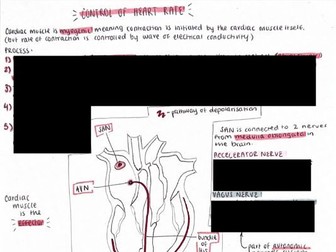 CONTROL OF HEART RATE
Cardiac muscle is myogenic meaning contraction is initiated by the cardiac muscle itself.
(but rate of contraction is controlled by wave of electrical conductivity)
PROCESS:
1)
2)
3)
4)
5)
→ pathway of depolarisation
SAN is connected to 2 nerves
from medulla oblongata in
the brain.
ACCELERATOR NERVE:
VAGUS NERVE:
SAN
AVN
Cardiac
muscle
is the
effector
bundle
of His
part of autonomic